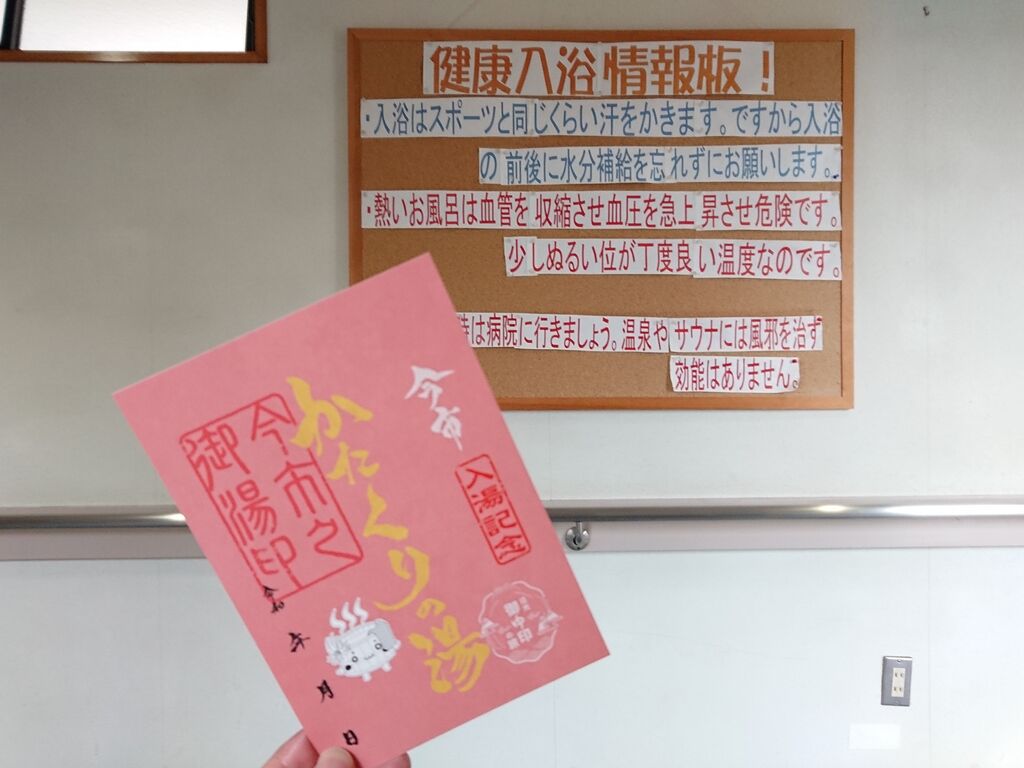 健康入浴情報板!
・入浴はスポーツと同じくらい汗をかきます。ですから入浴
の前後に水分補給を忘れずにお願いします。
・熱いお風呂は血管を収縮させ血圧を急上昇させ危険です。
少しぬるい位が丁度良い温度なのです。
は病院に行きましょう。温泉やサウナには風邪を治す
効能はありません。
今市
入湯記念
かたくりの湯
今市之
御湯印
令和
年
月
日